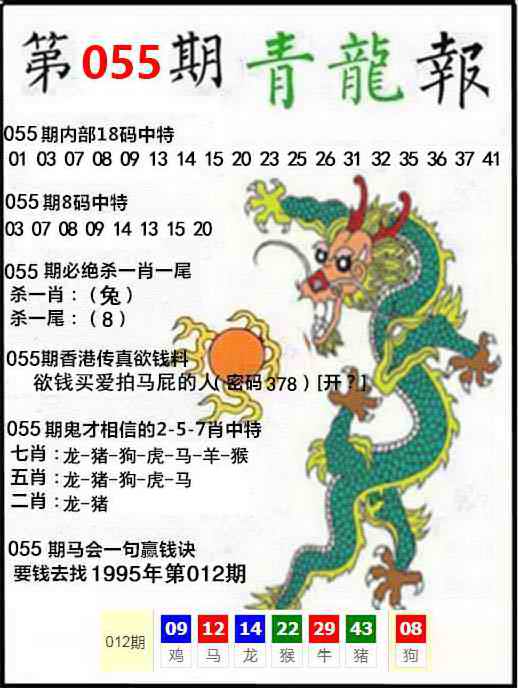 第055期青龍報
055期内部18码中特
01 03 07 08 09 13 14 15 20 23 25 26 31 32 35 36 37 41
055期8码中特
03 07 08 09 14 13 15 20
055 期必绝杀一肖一尾
杀一肖：（兔）
杀一尾：（8）
055期香港传真欲钱料
欲钱买爱拍马屁的人(密码378) [开？]
055期鬼才相信的2-5-7肖中特
七肖：龙-猪-狗-虎-马-羊-猴
五肖：龙-猪-狗-虎-马
二肖：龙-猪
055 期马会一句赢钱诀
要钱去找1995年第012期
012期 09 12 14 22 29 43 08
鸡 马 龙 猴 牛 猪 狗